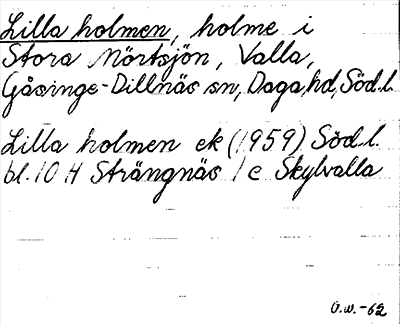 Lilla holmen, holme i
Stora Mörtsjön, Valla,
Gåsinge-Dillnäs sn, Daga hd, Söd.l.
Lilla holmen ek (1959) Söd.l.
bl. 10 H Strängnäs 1 e Skylvalla
O.W.-62